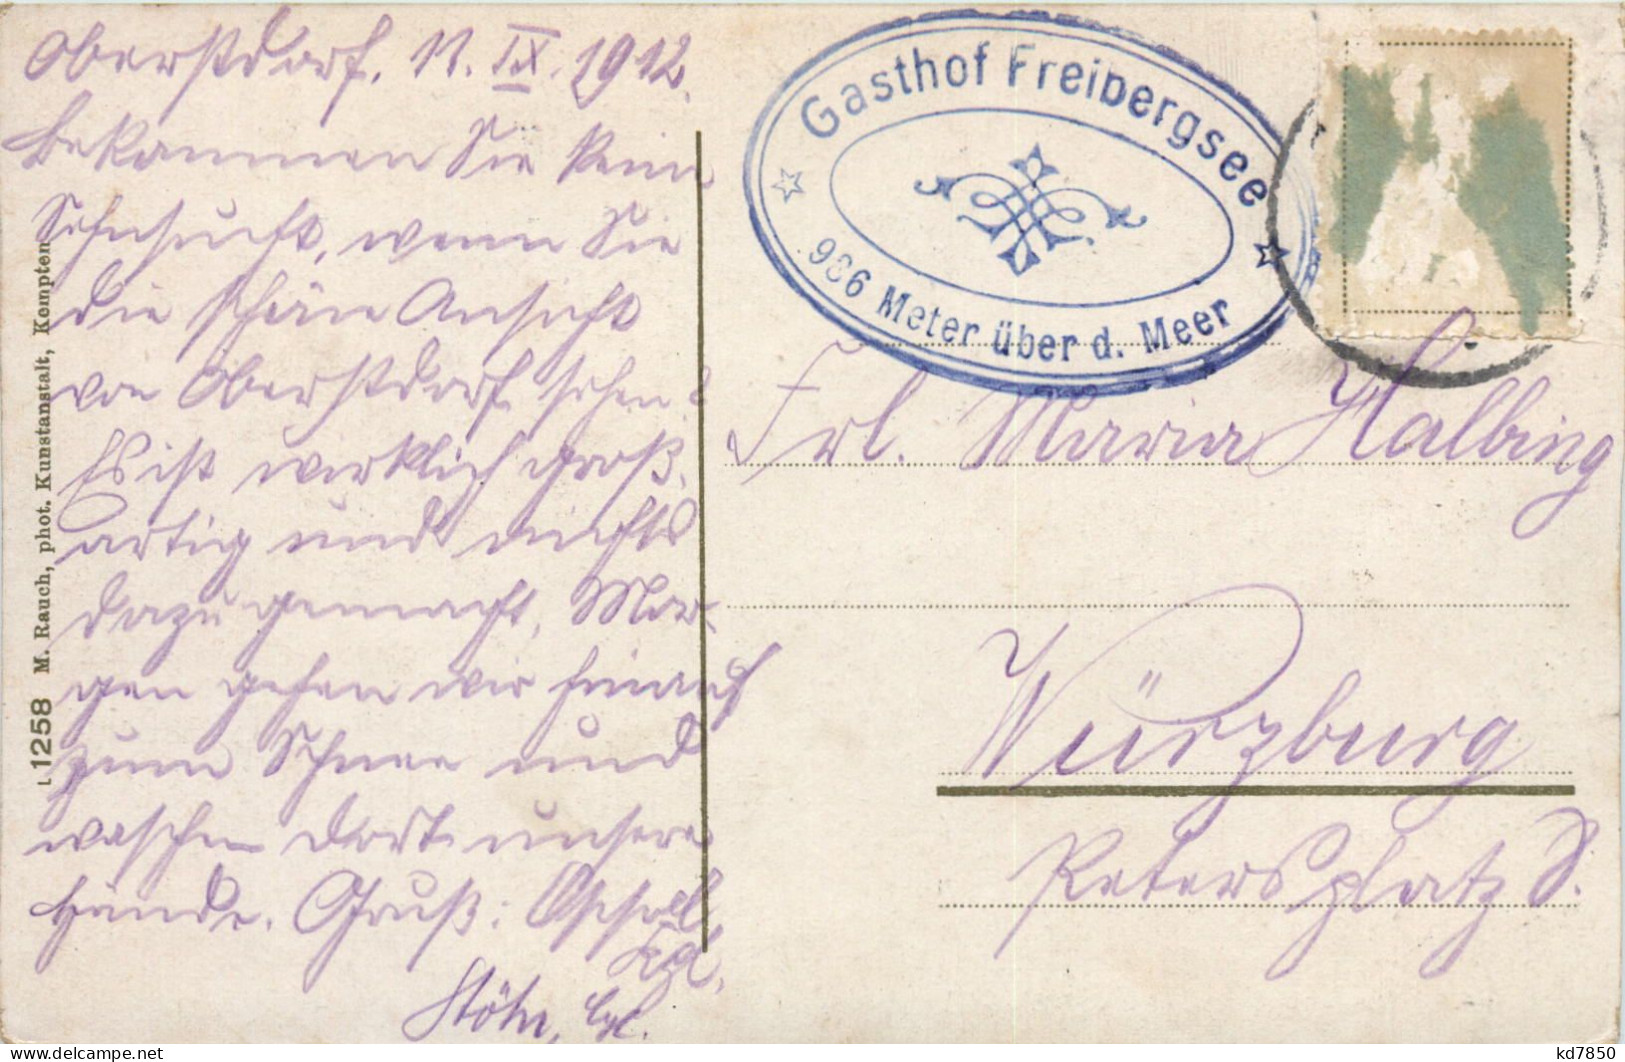 Oberstdorf, 11. IX. 1912.
Bekommen Sie kein
Sehnsucht, wenn Sie
die schöne Ansicht
von Oberstdorf sehen?
Es ist wirklich groß-
artig und nichts
dazu gemacht. Mor-
gen gehen wir hinauf
zum Schnee und
waschen dort unsere
Hände. Gruß:
Stöhr,
L 1258 M. Rauch, phot. Kunstanstalt, Kempten
Gasthof Freibergsee
986 Meter über d. Meer
Frl. Maria Halbing
Würzburg
Petersplatz 8.
kd7850